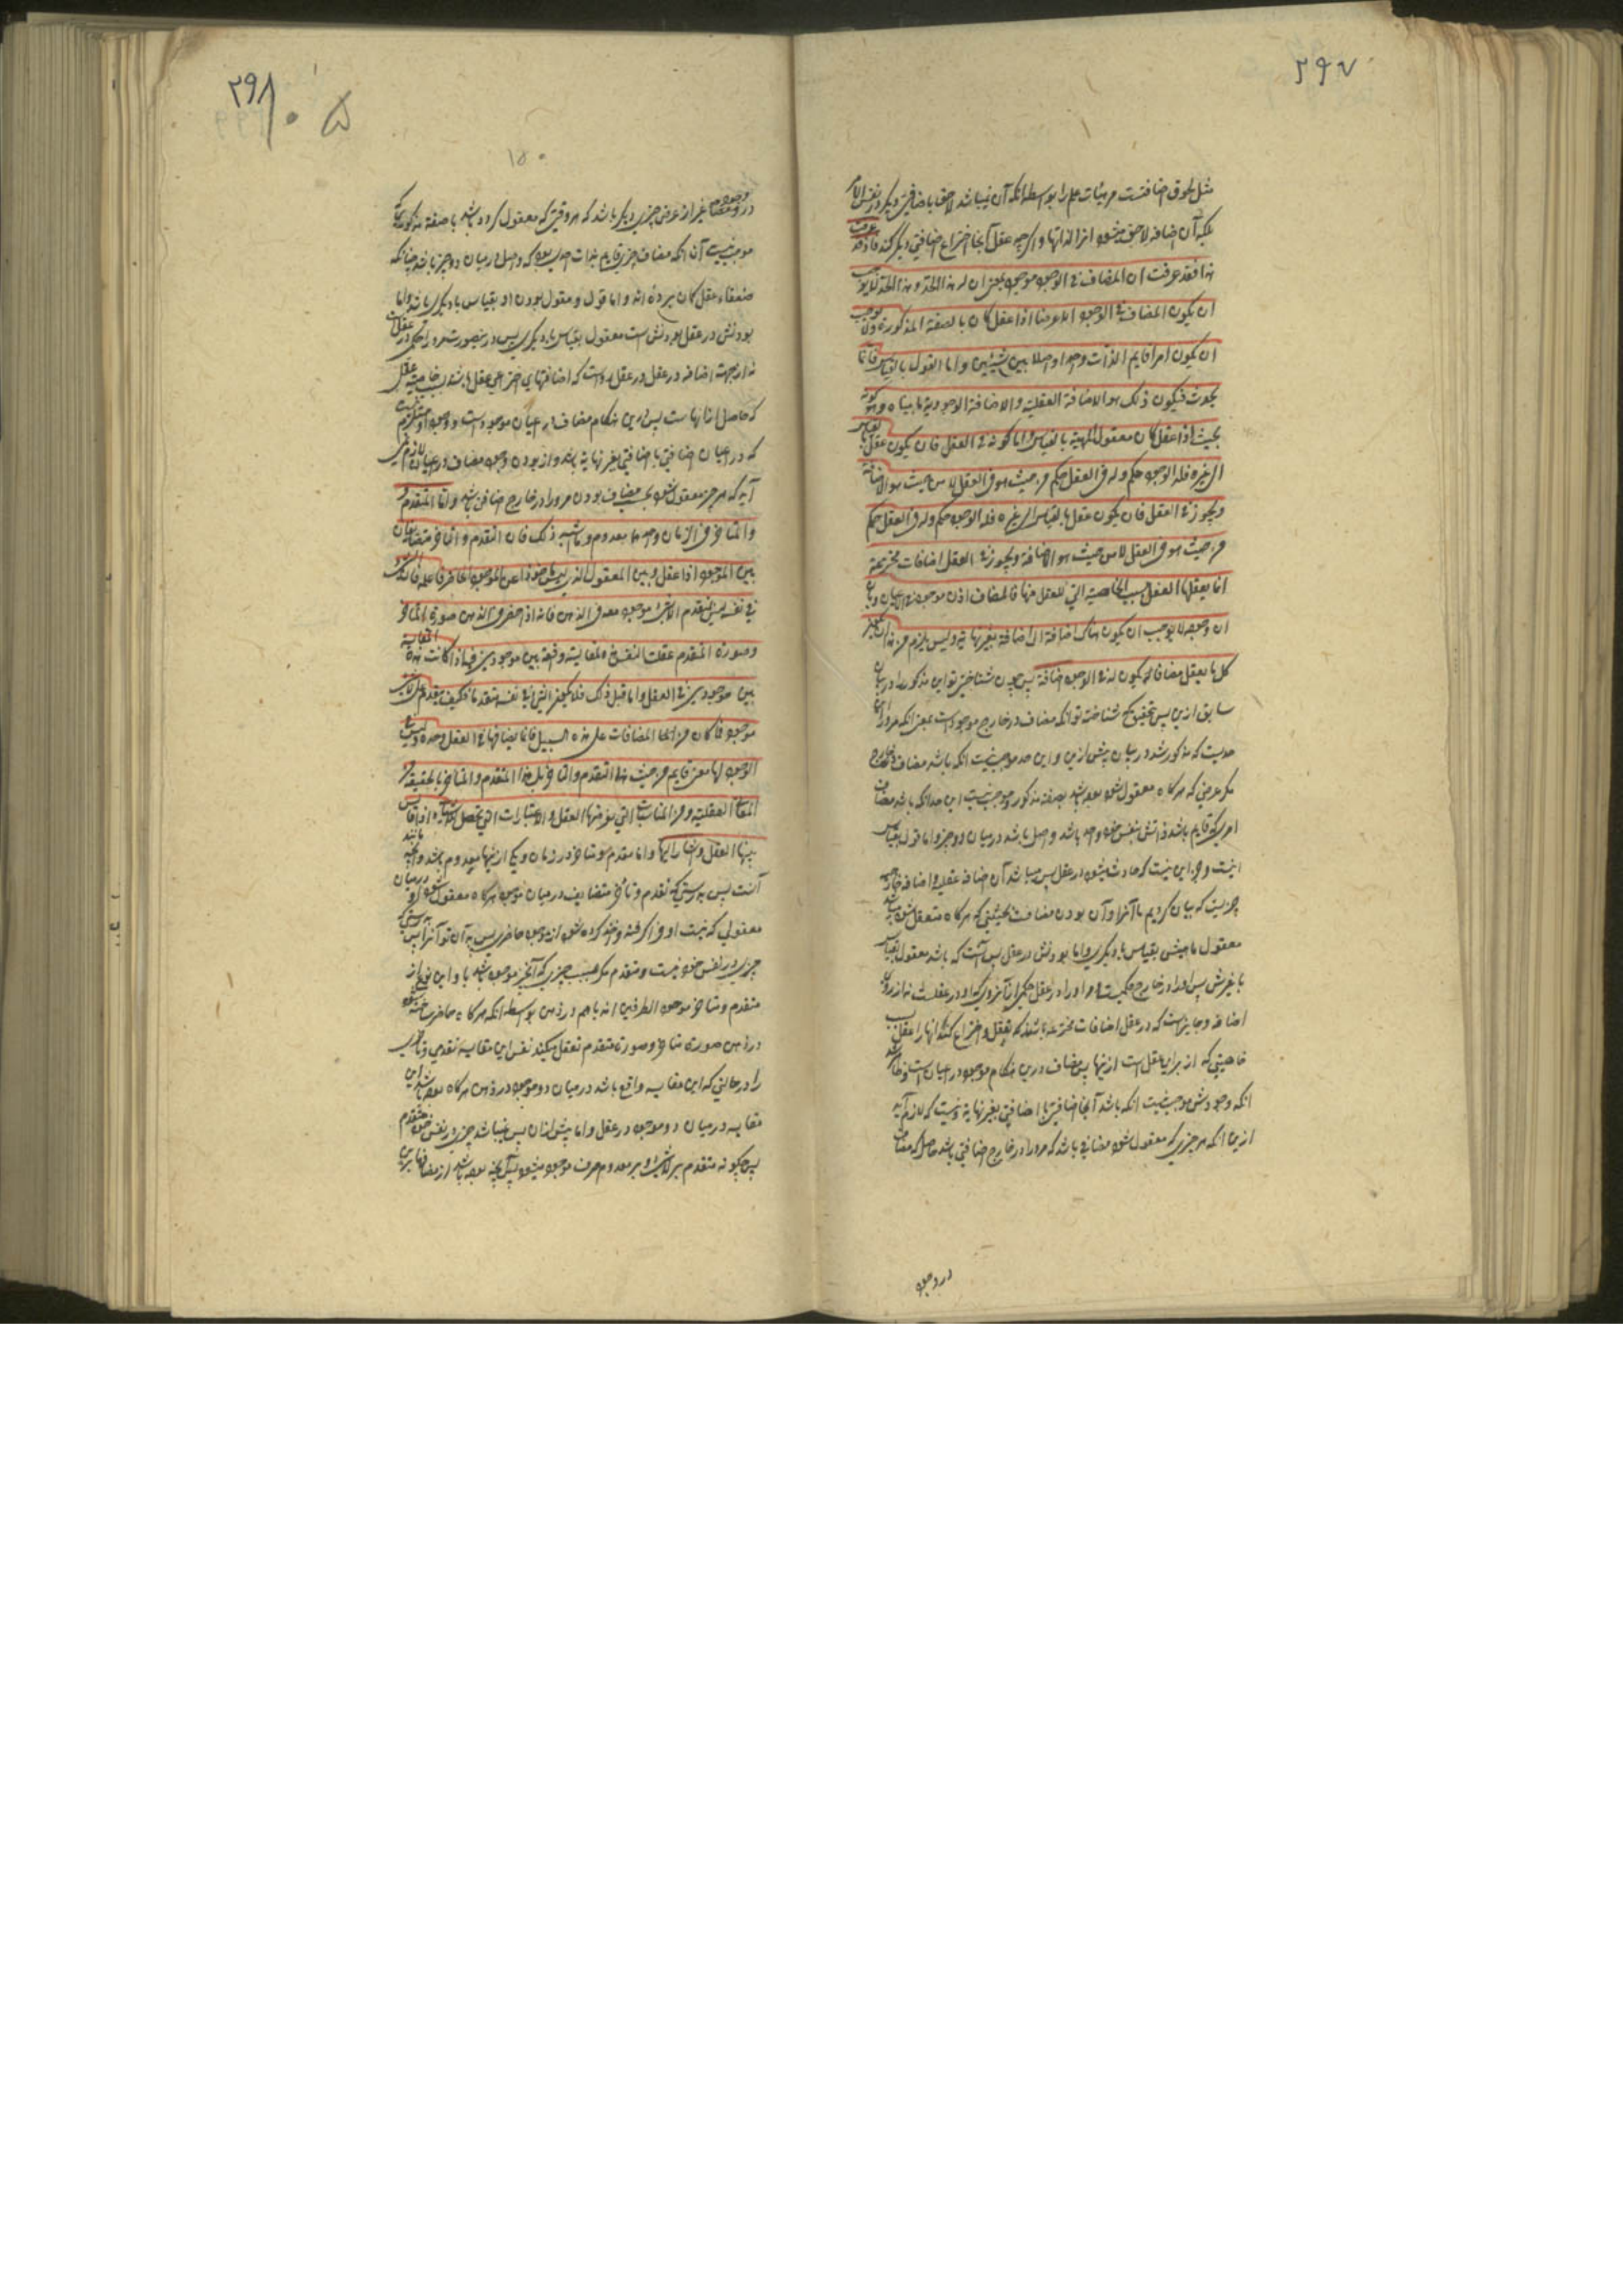 ۲۹۷
مثل لحوق اضافتست مر هیئات علم را بواسطه انکه آن نمیباشد لاحق باضافتی دیگر در نفس الامر
بلکه آن اضافه لاحق میشود انرا لذاتها و اگرچه عقل آنجا اختراع اضافتی دیگر کند فاذ قد عرفت
هذا فقد عرفت ان المضاف فی الوجود موجود بمعنی ان له هذا الحد و هذا الحد لایوجب
ان یکون المضاف فی الوجود الا عرضا اذا عقل کان بالصفة المذکورة ولا یوجب
ان یکون امرا قایم الذات واحدا واصلا بین شیئین واما القول بالقیاس فانما
یحدث فیکون ذلک هو الاضافة العقلیة والاضافة الوجودیة ما بیناه وهو کونه
بحیث اذا عقل کان معقول المهیة بالقیاس واما کونه فی العقل فان یکون عقل بالقیاس
الی غیره فله فی الوجود حکم وله فی العقل حکم من حیث هو فی العقل لا من حیث هو الاضافة
ویجوز فی العقل فان یکون عقل بالقیاس الی غیره فله فی الوجود حکم وله فی العقل حکم
من حیث هو فی العقل لا من حیث هو الاضافة ویجوز فی العقل اضافات مخترعة
انما یعقلها العقل بسبب الخاصیة التی للعقل منها فالمضاف اذن موجود فی الاعیان وبان
ان وجوده لا یوجب ان یکون هناک اضافة الی اضافة بغیر نهایة ولیس یلزم من هذا ان یکون
کل ما یعقل مضافا یکون له فی الوجود اضافة پس چون شناختی تو این مذکور را در بیان
سابق ازین پس بتحقیق که شناخته تو انکه مضاف در خارج موجود است بمعنی انکه مر او را این
حدیست که مذکور شد در بیان پیش ازین و این حد موجب نیست انکه باشد مضاف در خارج
مگر عرضی که هرگاه معقول شود بوده باشد بصفة مذکوره و موجب نیست این حد انکه باشد مضاف
امری که قایم باشد ذاتش بنفس خود واحد باشد واصل باشد درمیان دو چیز و اما قول بقیاس
اینست و جز این نیست که حادث میشود در عقل پس میباشد آن اضافه عقلی و اضافه خارجی
چیزیست که بیان کردیم ما آنرا و آن بودن مضافست بحیثیتی که هرگاه متعقل شود باشد
معقول ماهیتش بقیاس بادیگری و اما بودنش در عقل پس آنست که باشد معقول بقیاس
با غیرش پس او را در خارج حکمیست و او را در عقل حکمی از آنروی که او در عقلست نه از روی
اضافه و جایز است که در عقل اضافات مخترعه باشد که تعقل و اختراع کند انها را عقل بسبب
خاصیتی که از برای عقل است ازینها پس مضاف درین هنگام موجود در اعیان است و ظاهر شد
انکه وجودش موجب نیست انکه باشد آنجا اضافتی با اضافتی بغیر نهایة و نیست که لازم آید
ازین انکه هر چیزی که معقول شود مضافی باشد که مر او را در خارج اضافتی باشد حاصل که مضاف
در وجود
۲۹۸
۱۵۰
در وجود مضاف غیر از عرض چیزی دیگر باشد که هر وقتی که معقول گردد باشد با صفة مذکوره و این حد
موجب نیست آن انکه مضاف چیزی قایم بذات خود بود که واصل درمیان دو چیز باشد چنانکه
ضعفاء عقل گمان برده اند و اما قول و مقول بودن او بقیاس بادیگری باشد و اما
بودنش در عقل بودنش است معقول بقیاس بادیگری پس درینصورت مر او را حکمی در عقل است
نه از جهت اضافه در عقل و در عقل رواست که اضافتهای اختراعی عقل باشد بسبب خاصیت عقل
که حاصل از انهاست پس درین هنگام مضاف در اعیان موجود است و وجود او مستلزم نیست
که در اعیان اضافتی با اضافتی بغیر نهایة باشد و از بودن وجود مضاف در اعیان لازم نمی
آید که هر چیز معقول شود بحسب مضاف بودن مر او را در خارج اضافتی باشد واما المتقدم
والمتاخر فی الزمان واحدهما معدوم وما اشبه ذلک فان التقدم والتاخر متضایفان
بین الموجود اذا عقل وبین المعقول الذی لیس ماخوذا عن الموجود الحاضر فاعلم فان الشئ
فی نفسه لیس بمتقدم الا بشئ موجود معه فی الذهن فانه اذا حضر فی الذهن صورة المتاخر
وصورة المتقدم عقلت النفس هذه المقایسة واقعة بین موجودین فیها اذا کانت هذه المقایسة
بین موجودین فی العقل واما قبل ذلک فلا یکون الشئ فی نفسه متقدما فکیف یتقدم علی لاشئ
موجود فما کان من المضافات علی هذه السبیل فانما تضایفها فی العقل وحده ولیس فی
الوجود لها معنی قایم من حیث هذا التقدم والتاخر بل هذا المتقدم والمتاخر بالحقیقة
المعانی العقلیة ومن المناسبات التی یفرضها العقل والاعتبارات التی تحصل للاشیاء اذا قایس
بینها العقل واشار الیها واما متقدم و متاخر در زمان و یکی ازینها معدوم باشد و انچه مانند
آنست پس بدرستی که تقدم و تأخر متضایف درمیان موجود هرگاه معقول شود و درمیان
معقولی که نیست او فراگرفته و اخذ کرده شود از موجود حاضر پس بدان تو آنرا پس بدرستی که
چیزی در نفس خود نیست متقدم مگر بسبب چیزی که آنچیز موجود باشد با او این نوع از
متقدم و متاخر موجود الطرفین اند باهم در ذهن بواسطه انکه هرگاه حاضر ساخته شود
در ذهن صورة متاخر و صورة متقدم تعقل میکند نفس این مقایسه تقدمی و تاخری
را در حالتی که این مقایسه واقع باشد درمیان دو موجود در ذهن هرگاه بوده باشد این
مقایسه درمیان دو موجود در عقل و اما پیش ازان پس نمیباشد چیزی در نفس خود متقدم
پس چگونه متقدم بر لاشئ و بر معدوم صرف موجود میشود پس آنچه بوده باشد از مضافها برین